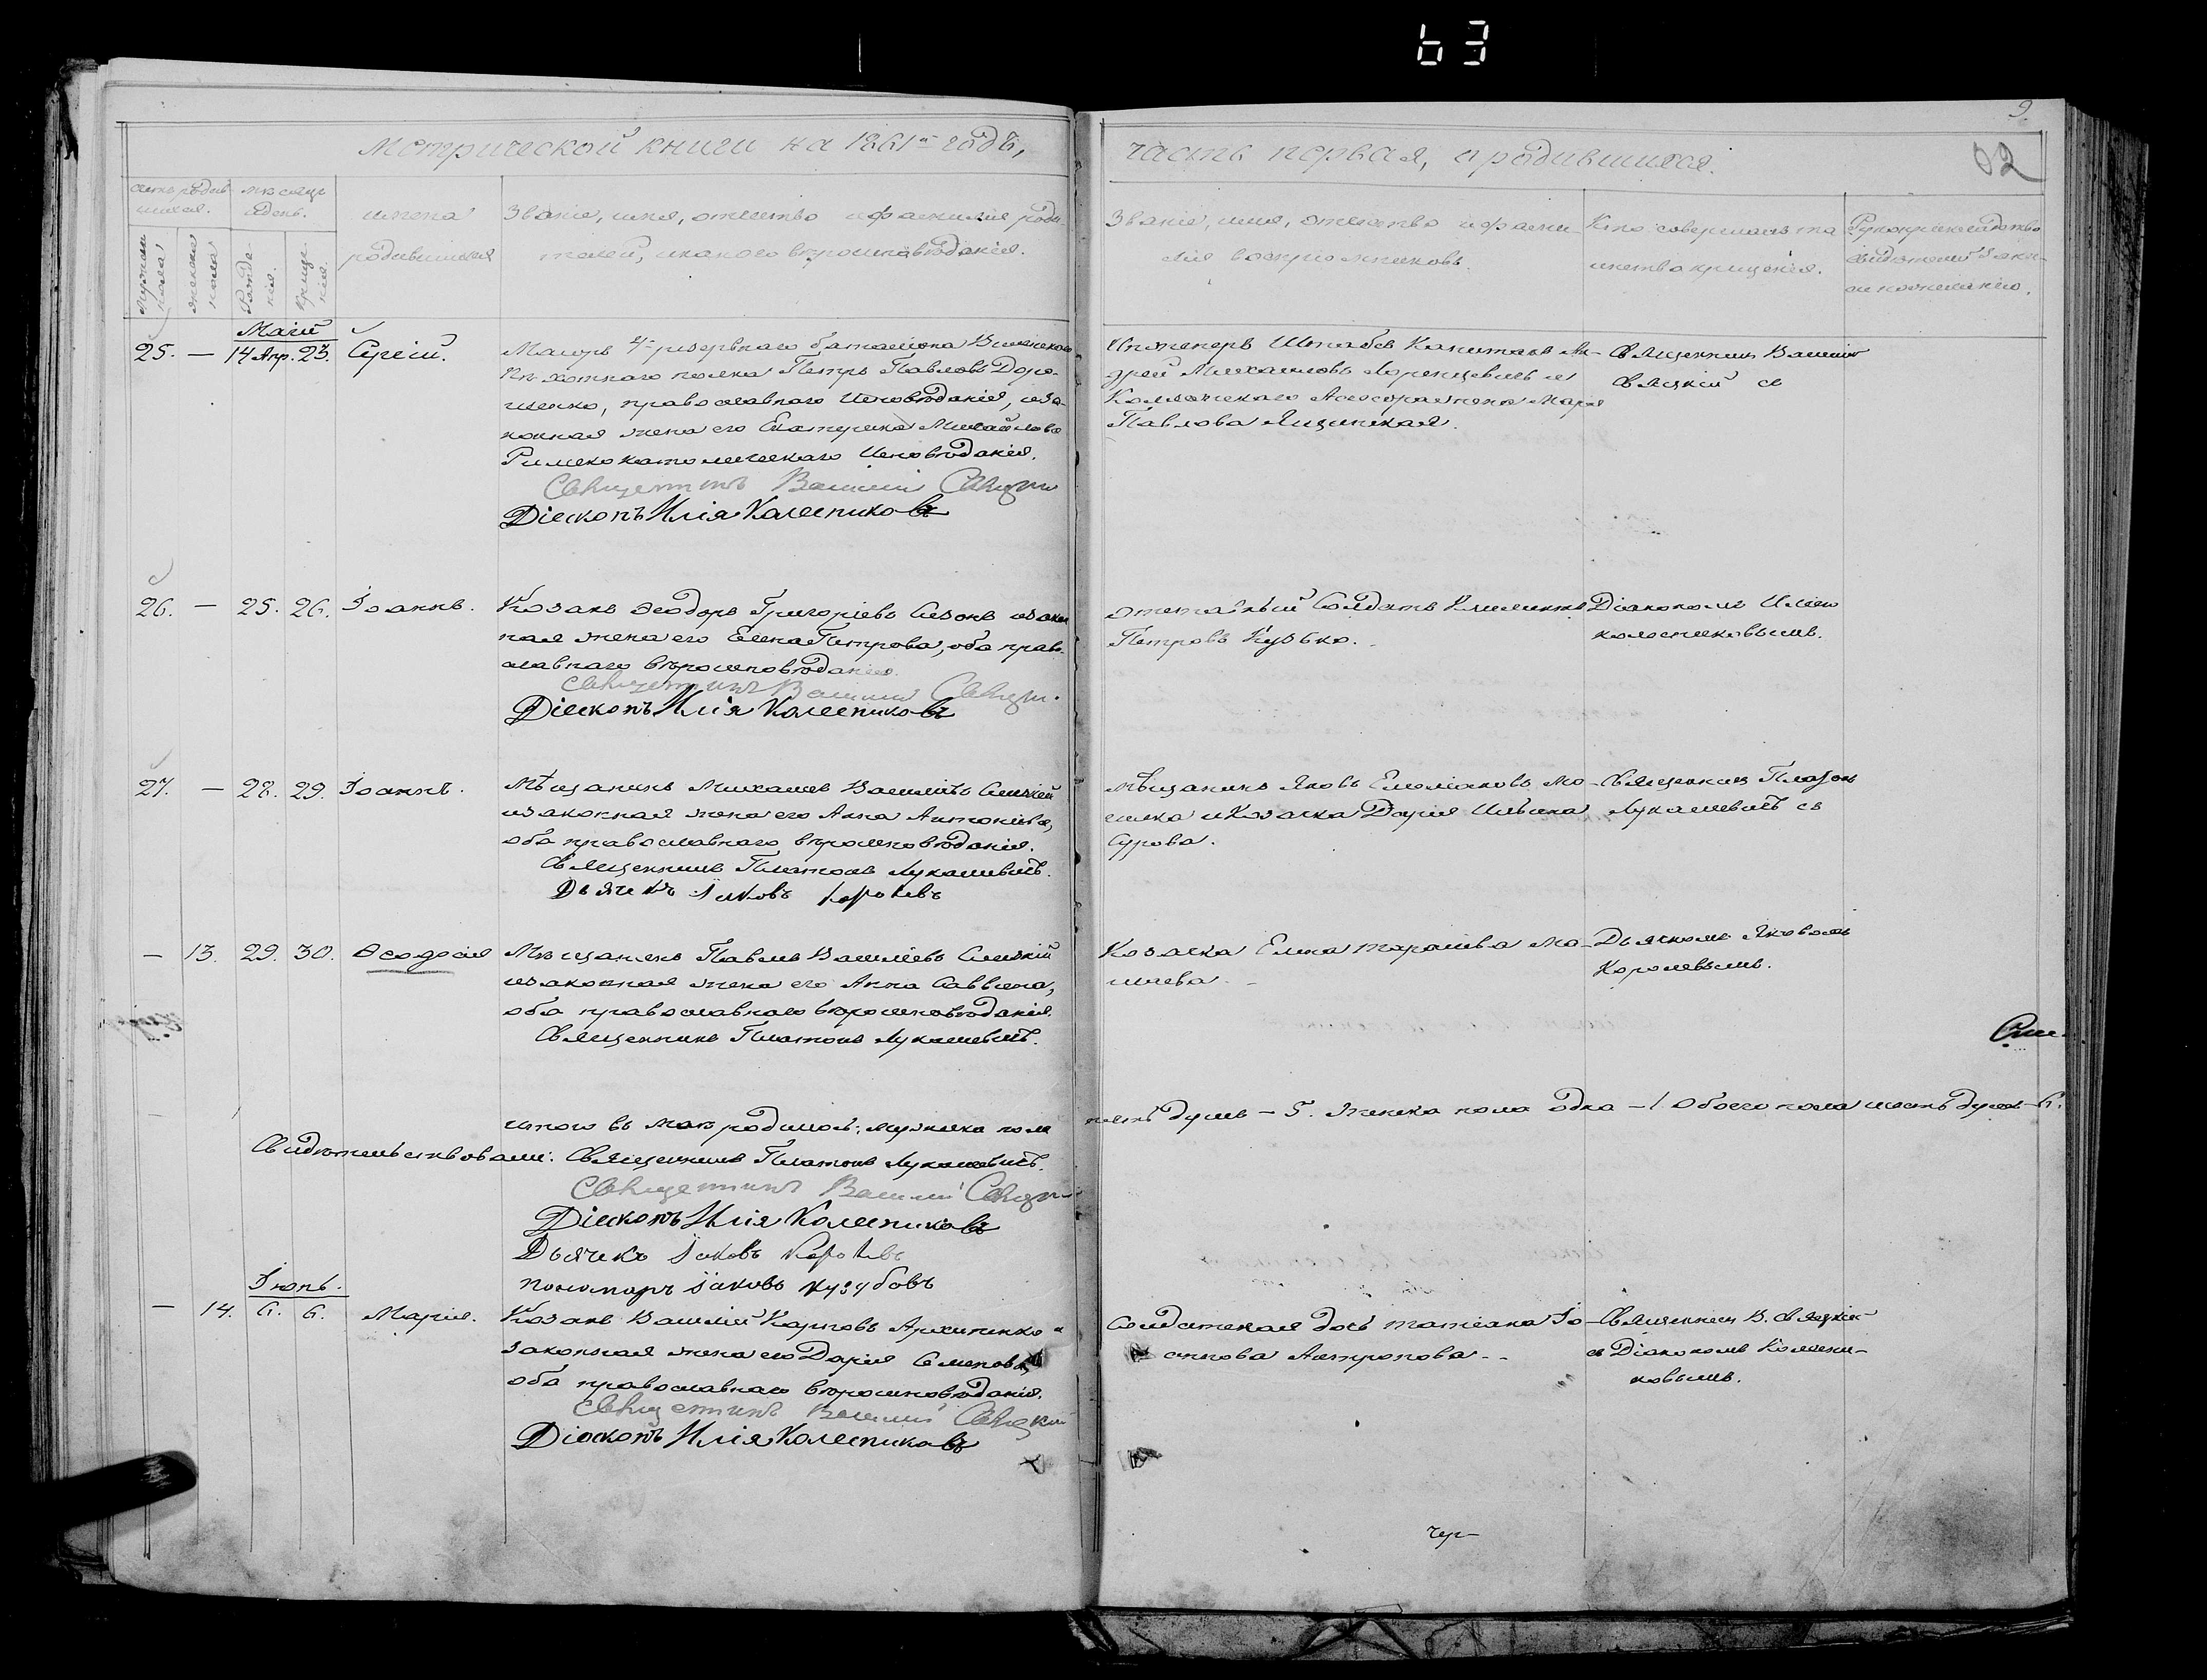 63
9.
62
Метрической книги на 1861й годъ,
часть первая, о родившихся.
Счетъ родив
шихся.
Мѣсяцъ
и день.
Мужеска
пола.
женска
пола.
Рожде-
нія.
Креще-
нія.
имена
родившихся
Званіе, имя, отчество и фамилия роди-
телей, и какого вѣроисповѣданія.
Званіе, имя, отчество и фами-
лія воспріемниковъ.
Кто совершалъ та
инство крещенія.
Рукоприкладство
свидѣтелей записи
по желанію.
Маій
25. — 14 Апр. 23. Сергій.
Маиоръ 4го резервнаго баталіона Виленскаго
Пѣхотнаго полка Петръ Павловъ Доро-
шенко, православнаго Исповѣданія, и за-
конная жена его Екатерина Михайлова
Римско католическаго Исповѣданія.
Священникъ Василий Свяцки
Діаконъ Илія Колесниковъ
Инженеръ Штабсъ Капитанъ Ан-
дрей Михаиловъ Лоренцевичъ и
Коллежскаго Ассесора жена Марія
Павлова Ящинская.
Священникъ Василій
Свяцкій съ
26. — 25. 26. Іоаннъ.
Козакъ Ѳеодоръ Григоріевъ Сизонъ и закон
ная жена его Елена Петрова, оба право-
славнаго вѣроисповѣданія.
Священникъ Василий Свяцки.
Діаконъ Илія Колесниковъ
отставный Солдатъ Климентъ
Петровъ Кузько.
Діакономъ Иліею
Колесниковымъ.
27. — 28. 29. Іоаннъ.
Мѣщанинъ Михаилъ Василіевъ Сицкій
и законная жена его Анна Антоніева,
оба православнаго вѣроисповѣданія.
Священникъ Платонъ Лукашевичъ.
Дьячекъ Іаковъ Королевъ
мѣщанинъ Яковъ Емеліановъ Мо-
сика и Козачка Дарія Ильина
Сурова.
Священникъ Платонъ
Лукашевичъ съ
— 13. 29. 30. Ѳеодосія
Мѣщанинъ Павелъ Василіевъ Сицкій
и законная жена его Анна Саввина,
оба православнаго вѣроисповѣданія.
Священникъ Платонъ Лукашевичъ.
Козачка Елена Тарасіева Мо-
шаева.
Дьячкомъ Яковомъ
Королевымъ.
итого въ маѣ родилось: мужеска пола
пять душъ — 5. Женска пола одна — 1. Обоего пола шесть душъ — 6.
Свидѣтельствовали: Священникъ Платонъ Лукашевичъ.
Священникъ Василий Свяцки
Діаконъ Илія Колесниковъ
Дьячекъ Іаковъ Королевъ
пономарь Іаковъ Кузубовъ
Іюнь.
— 14. 6. 6. Марія.
Козакъ Василій Карповъ Архипенко и
законная жена его Дарія Семенова,
оба православнаго вѣроисповѣданія.
Священникъ Василий Свяцкий
Діаконъ Илія Колесниковъ
Солдатская дочь Татіана Іо-
сипова Антропова.
Священникъ В. Свяцкій
съ Діакономъ Колесни-
ковымъ.